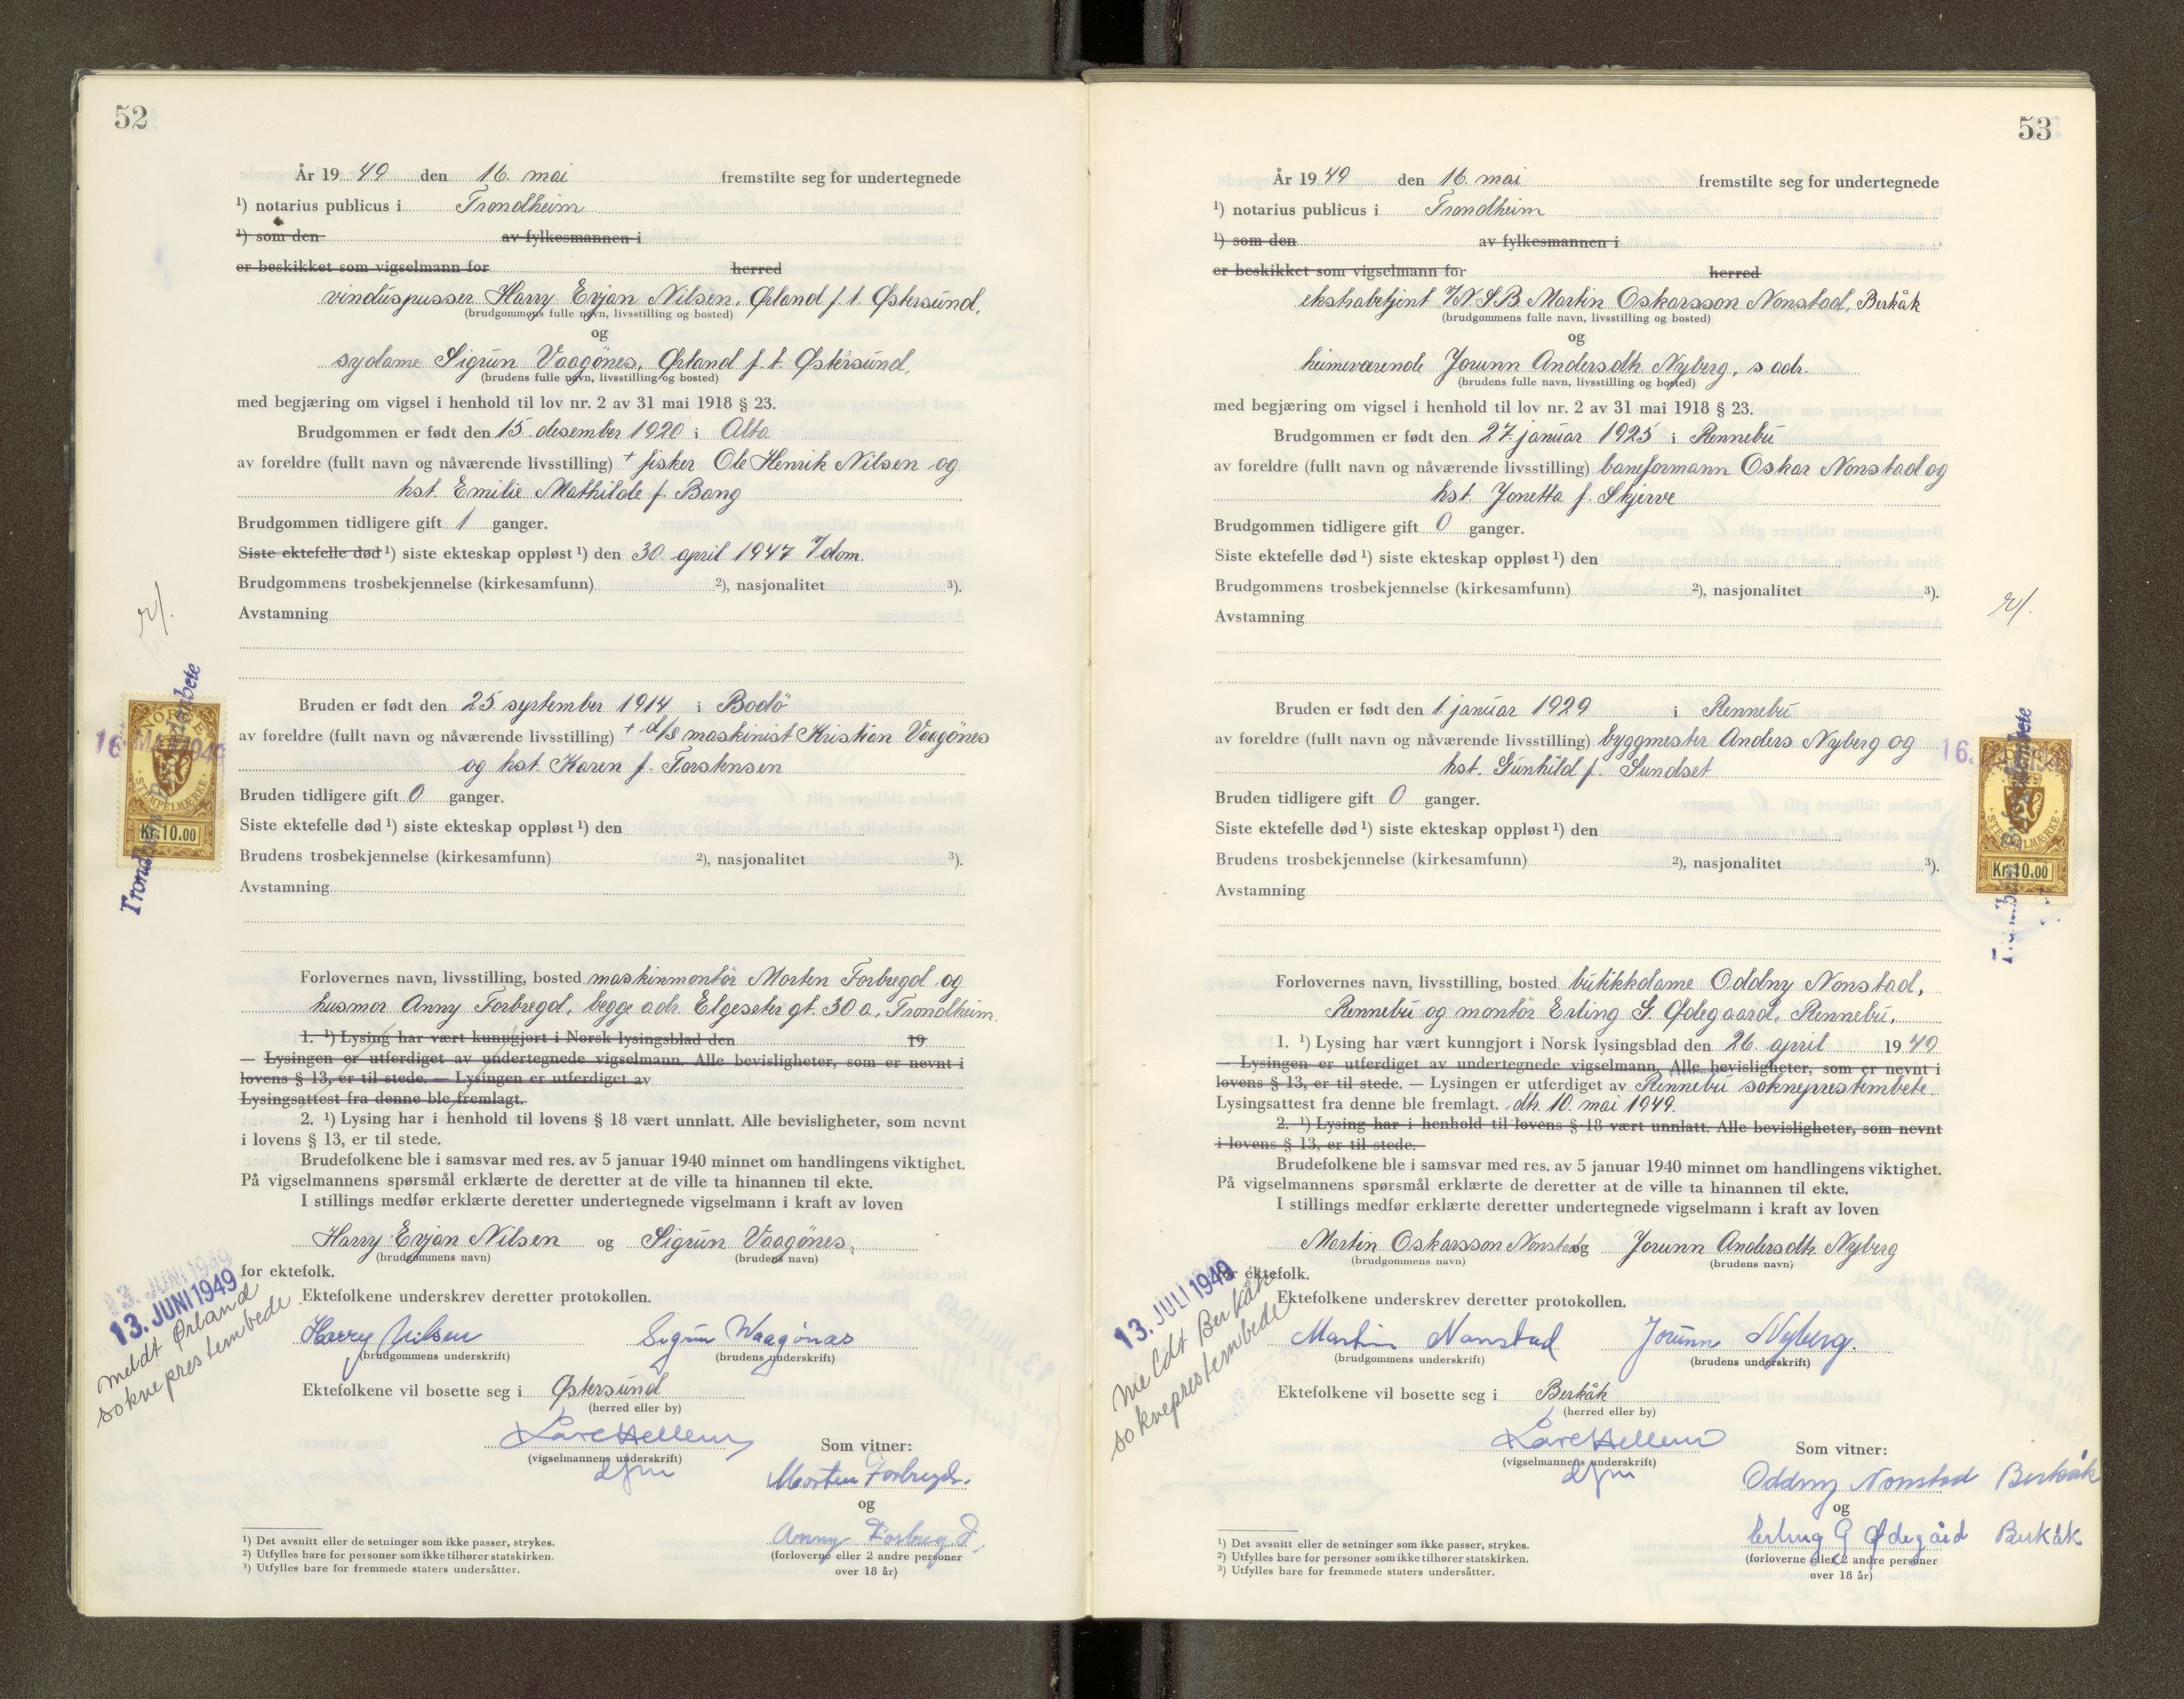 52
År 19 49 den 16. mai fremstilte seg for undertegnede
¹) notarius publicus i Trondheim
¹) som den av fylkesmannen i
er beskikket som vigselmann for herred
vinduspusser Harry Evjan Nilsen, Ørland f. t. Østersund,
(brudgommens fulle navn, livsstilling og bosted)
og
sydame Sigrun Vaagönes, Ørland f. t. Østersund,
(brudens fulle navn, livsstilling og bosted)
med begjæring om vigsel i henhold til lov nr. 2 av 31 mai 1918 § 23.
Brudgommen er født den 15. desember 1920 i Alta
av foreldre (fullt navn og nåværende livsstilling) + fisker Ole Henrik Nilsen og
hst. Emilie Mathilde f. Bang
Brudgommen tidligere gift 1 ganger.
Siste ektefelle død ¹) siste ekteskap oppløst ¹) den 30. april 1947 v/dom.
Brudgommens trosbekjennelse (kirkesamfunn) ²), nasjonalitet ³).
Avstamning
Bruden er født den 25 september 1914 i Bodö
av foreldre (fullt navn og nåværende livsstilling) + d/s maskinist Kristian Vaagönes
og hst. Karen f. Torstensen
Bruden tidligere gift 0 ganger.
Siste ektefelle død ¹) siste ekteskap oppløst ¹) den
Brudens trosbekjennelse (kirkesamfunn) ²), nasjonalitet ³).
Avstamning
Forlovernes navn, livsstilling, bosted maskinmontör Morten Forbregd og
husmor Anny Forbregd, begge adr. Elgeseter gt. 30 a, Trondheim.
1. ¹) Lysing har vært kunngjort i Norsk lysingsblad den 19
— Lysingen er utferdiget av undertegnede vigselmann. Alle bevisligheter, som er nevnt i
lovens § 13, er til stede. — Lysingen er utferdiget av
Lysingsattest fra denne ble fremlagt.
2. ¹) Lysing har i henhold til lovens § 18 vært unnlatt. Alle bevisligheter, som nevnt
i lovens § 13, er til stede.
Brudefolkene ble i samsvar med res. av 5 januar 1940 minnet om handlingens viktighet.
På vigselmannens spørsmål erklærte de deretter at de ville ta hinannen til ekte.
I stillings medfør erklærte deretter undertegnede vigselmann i kraft av loven
Harry Evjan Nilsen og Sigrun Vaagönes,
(brudgommens navn) (brudens navn)
for ektefolk.
Ektefolkene underskrev deretter protokollen.
Harry Nilsen Sigrun Waagönas
(brudgommens underskrift) (brudens underskrift)
Ektefolkene vil bosette seg i Østersund
(herred eller by)
(vigselmannens underskrift)
dfm
Som vitner:
Morten Forbregd.
og
Anny Forbregd.
(forloverne eller 2 andre personer
over 18 år)
¹) Det avsnitt eller de setninger som ikke passer, strykes.
²) Utfylles bare for personer som ikke tilhører statskirken.
³) Utfylles bare for fremmede staters undersåtter.
16 MAI 1949
NORGE
STEMPELMÆRKE
Kr. 10.00
13. JUNI 1949
13. JUNI 1949
meldt Ørland
sokneprestembede
53
År 19 49 den 16. mai fremstilte seg for undertegnede
¹) notarius publicus i Trondheim
¹) som den av fylkesmannen i
er beskikket som vigselmann for herred
ekstrabetjent v/N.S.B. Martin Oskarsson Nonstad, Berkåk
(brudgommens fulle navn, livsstilling og bosted)
og
heimeværende Jorunn Andersdtr. Nyberg, s. adr.
(brudens fulle navn, livsstilling og bosted)
med begjæring om vigsel i henhold til lov nr. 2 av 31 mai 1918 § 23.
Brudgommen er født den 27. januar 1925 i Rennebu
av foreldre (fullt navn og nåværende livsstilling) baneformann Oskar Nonstad og
hst. Jonetta f. Skjerve
Brudgommen tidligere gift 0 ganger.
Siste ektefelle død ¹) siste ekteskap oppløst ¹) den
Brudgommens trosbekjennelse (kirkesamfunn) ²), nasjonalitet ³).
Avstamning
Bruden er født den 1. januar 1929 i Rennebu
av foreldre (fullt navn og nåværende livsstilling) byggmester Anders Nyberg og
hst. Gunhild f. Sundset
Bruden tidligere gift 0 ganger.
Siste ektefelle død ¹) siste ekteskap oppløst ¹) den
Brudens trosbekjennelse (kirkesamfunn) ²), nasjonalitet ³).
Avstamning
Forlovernes navn, livsstilling, bosted butikkdame Oddny Nonstad,
Rennebu og montör Erling G. Ødegaard, Rennebu.
1. ¹) Lysing har vært kunngjort i Norsk lysingsblad den 26. april 19 49
— Lysingen er utferdiget av undertegnede vigselmann. Alle bevisligheter, som er nevnt i
lovens § 13, er til stede. — Lysingen er utferdiget av Rennebu sokneprestembete
Lysingsattest fra denne ble fremlagt. dtr. 10. mai 1949.
2. ¹) Lysing har i henhold til lovens § 18 vært unnlatt. Alle bevisligheter, som nevnt
i lovens § 13, er til stede.
Brudefolkene ble i samsvar med res. av 5 januar 1940 minnet om handlingens viktighet.
På vigselmannens spørsmål erklærte de deretter at de ville ta hinannen til ekte.
I stillings medfør erklærte deretter undertegnede vigselmann i kraft av loven
Martin Oskarsson Nonstad og Jorunn Andersdtr. Nyberg
(brudgommens navn) (brudens navn)
for ektefolk.
Ektefolkene underskrev deretter protokollen.
Martin Nonstad Jorunn Nyberg.
(brudgommens underskrift) (brudens underskrift)
Ektefolkene vil bosette seg i Berkåk
(herred eller by)
(vigselmannens underskrift)
dfm
Som vitner:
Oddny Nonstad Berkåk
og
Erling G Ødegård Berkåk
(forloverne eller 2 andre personer
over 18 år)
¹) Det avsnitt eller de setninger som ikke passer, strykes.
²) Utfylles bare for personer som ikke tilhører statskirken.
³) Utfylles bare for fremmede staters undersåtter.
16.
STEMPELMÆRKE
Kr. 10.00
13. JULI 1949
meldt Berkåk
sokneprestembede